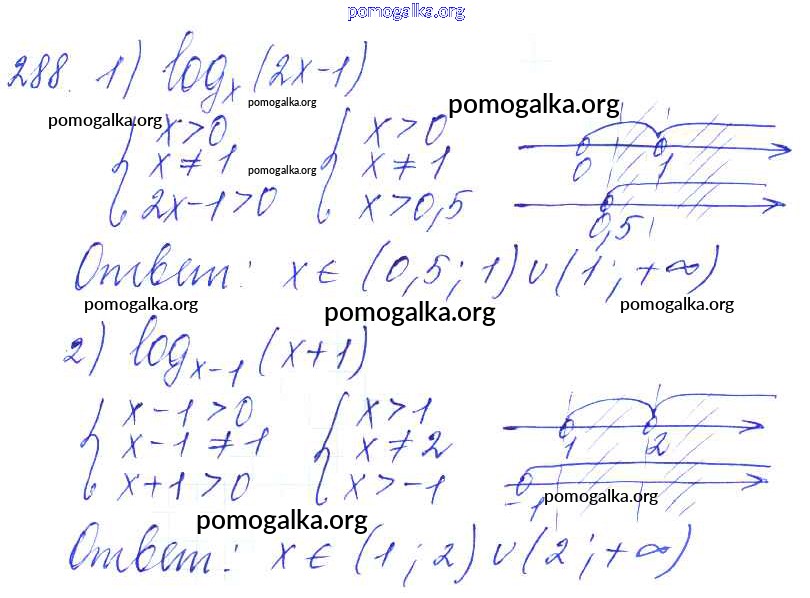 pomogalka.org
288. 1) log_x (2x-1)
pomogalka.org
pomogalka.org
pomogalka.org
{ x>0 { x>0
{ x≠1 { x≠1
pomogalka.org
{ 2x-1>0 { x>0,5
0 1
0,5
Ответ: x ∈ (0,5; 1) ∪ (1; +∞)
pomogalka.org
pomogalka.org
pomogalka.org
2) log_{x-1} (x+1)
{ x-1>0 { x>1
{ x-1≠1 { x≠2
{ x+1>0 { x>-1
1 2
-1
pomogalka.org
pomogalka.org
Ответ: x ∈ (1; 2) ∪ (2; +∞)